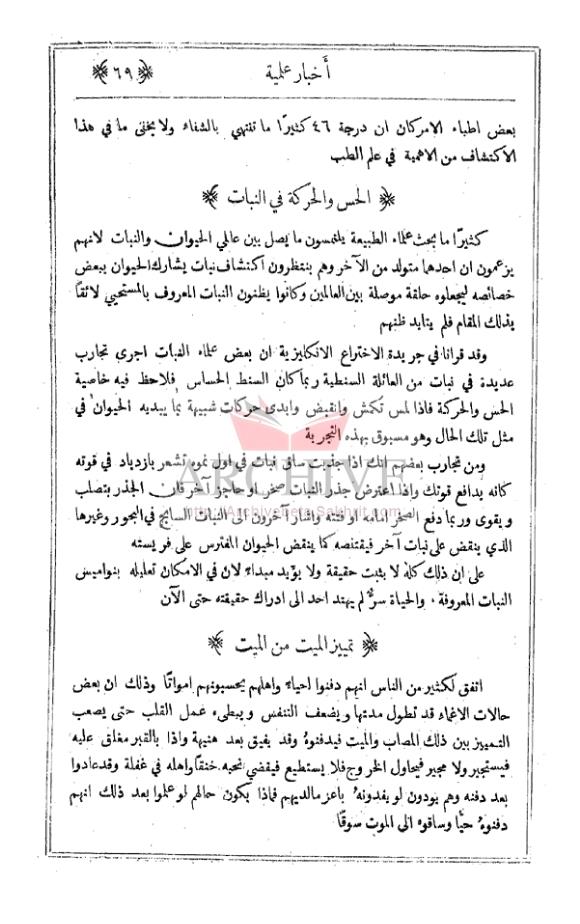 أخبار علمية ﴿٦٩﴾
بعض اطباء الامركان ان درجة ٤٦ كثيرًا ما تنتهي بالشفاء ولا يخفى ما في هذا
الاكتشاف من الاهمية في علم الطب
﴿ الحس والحركة في النبات ﴾
كثيرًا ما بحث علماء الطبيعة يلتمسون ما يصل بين عالمي الحيوان والنبات لانهم
يزعمون ان احدها متولد من الآخر وهم ينتظرون اكتشاف نبات يشارك الحيوان ببعض
خصائصه ليجعلوه حلقة موصلة بين العالمين وكانوا يظنون النبات المعروف بالمستحيي لائقًا
بذلك المقام فلم يتايد ظنهم
وقد قرانا في جريدة الاختراع الانكليزية ان بعض علماء النبات اجرى تجارب
عديدة في نبات من العائلة السنطية ربما كان السنط الحساس فلاحظ فيه خاصية
الحس والحركة فاذا لمس تُكمش وانقبض وابدى حركات شبيهة بما يبديه الحيوان في
مثل تلك الحال وهو مسبوق بهذه التجربة
ARCHIVE
ومن تجارب بعضهم انك اذا جذبت ساق نبات في اول نموه تشعر بازدياد في قوته
كانه يدافع قوتك واذا اعترض جذر النبات صخر او حاجز آخر فان الجذر يتصلب
http://Archivebeta.Sakhrit.com
ويقوى وربما دفع الصخر امامه او فتته واشار آخرون الى النبات السابح في البحور وغيرها
الذي ينقض على نبات آخر فيقتنصه كما ينقض الحيوان المفترس على فريسته
على ان ذلك كله لا يثبت حقيقة ولا يؤيد مبداء لان في الامكان تعليله بنواميس
النبات المعروفة ٠ والحياة سرٌّ لم يهتد احد الى ادراك حقيقته حتى الآن
﴿ تمييز الميت من الميت ﴾
اتفق لكثير من الناس انهم دفنوا احياء واهلهم يحسبونهم امواتًا وذلك ان بعض
حالات الاغماء قد تطول مدتها ويضعف التنفس ويبطىء عمل القلب حتى يصعب
التمييز بين ذلك المصاب والميت فيدفنوهُ وقد يفيق بعد هنيهة واذا بالقبر مغلق عليه
فيستجير ولا مجير فيحاول الخروج فلا يستطيع فيقضي نحبه خنقًا واهله في غفلة وقد عادوا
بعد دفنه وهم يودون لو يفدونهُ باعز ما لديهم فماذا يكون حالهم لو علموا بعد ذلك انهم
دفنوهُ حيًّا وساقوه الى الموت سوقًا